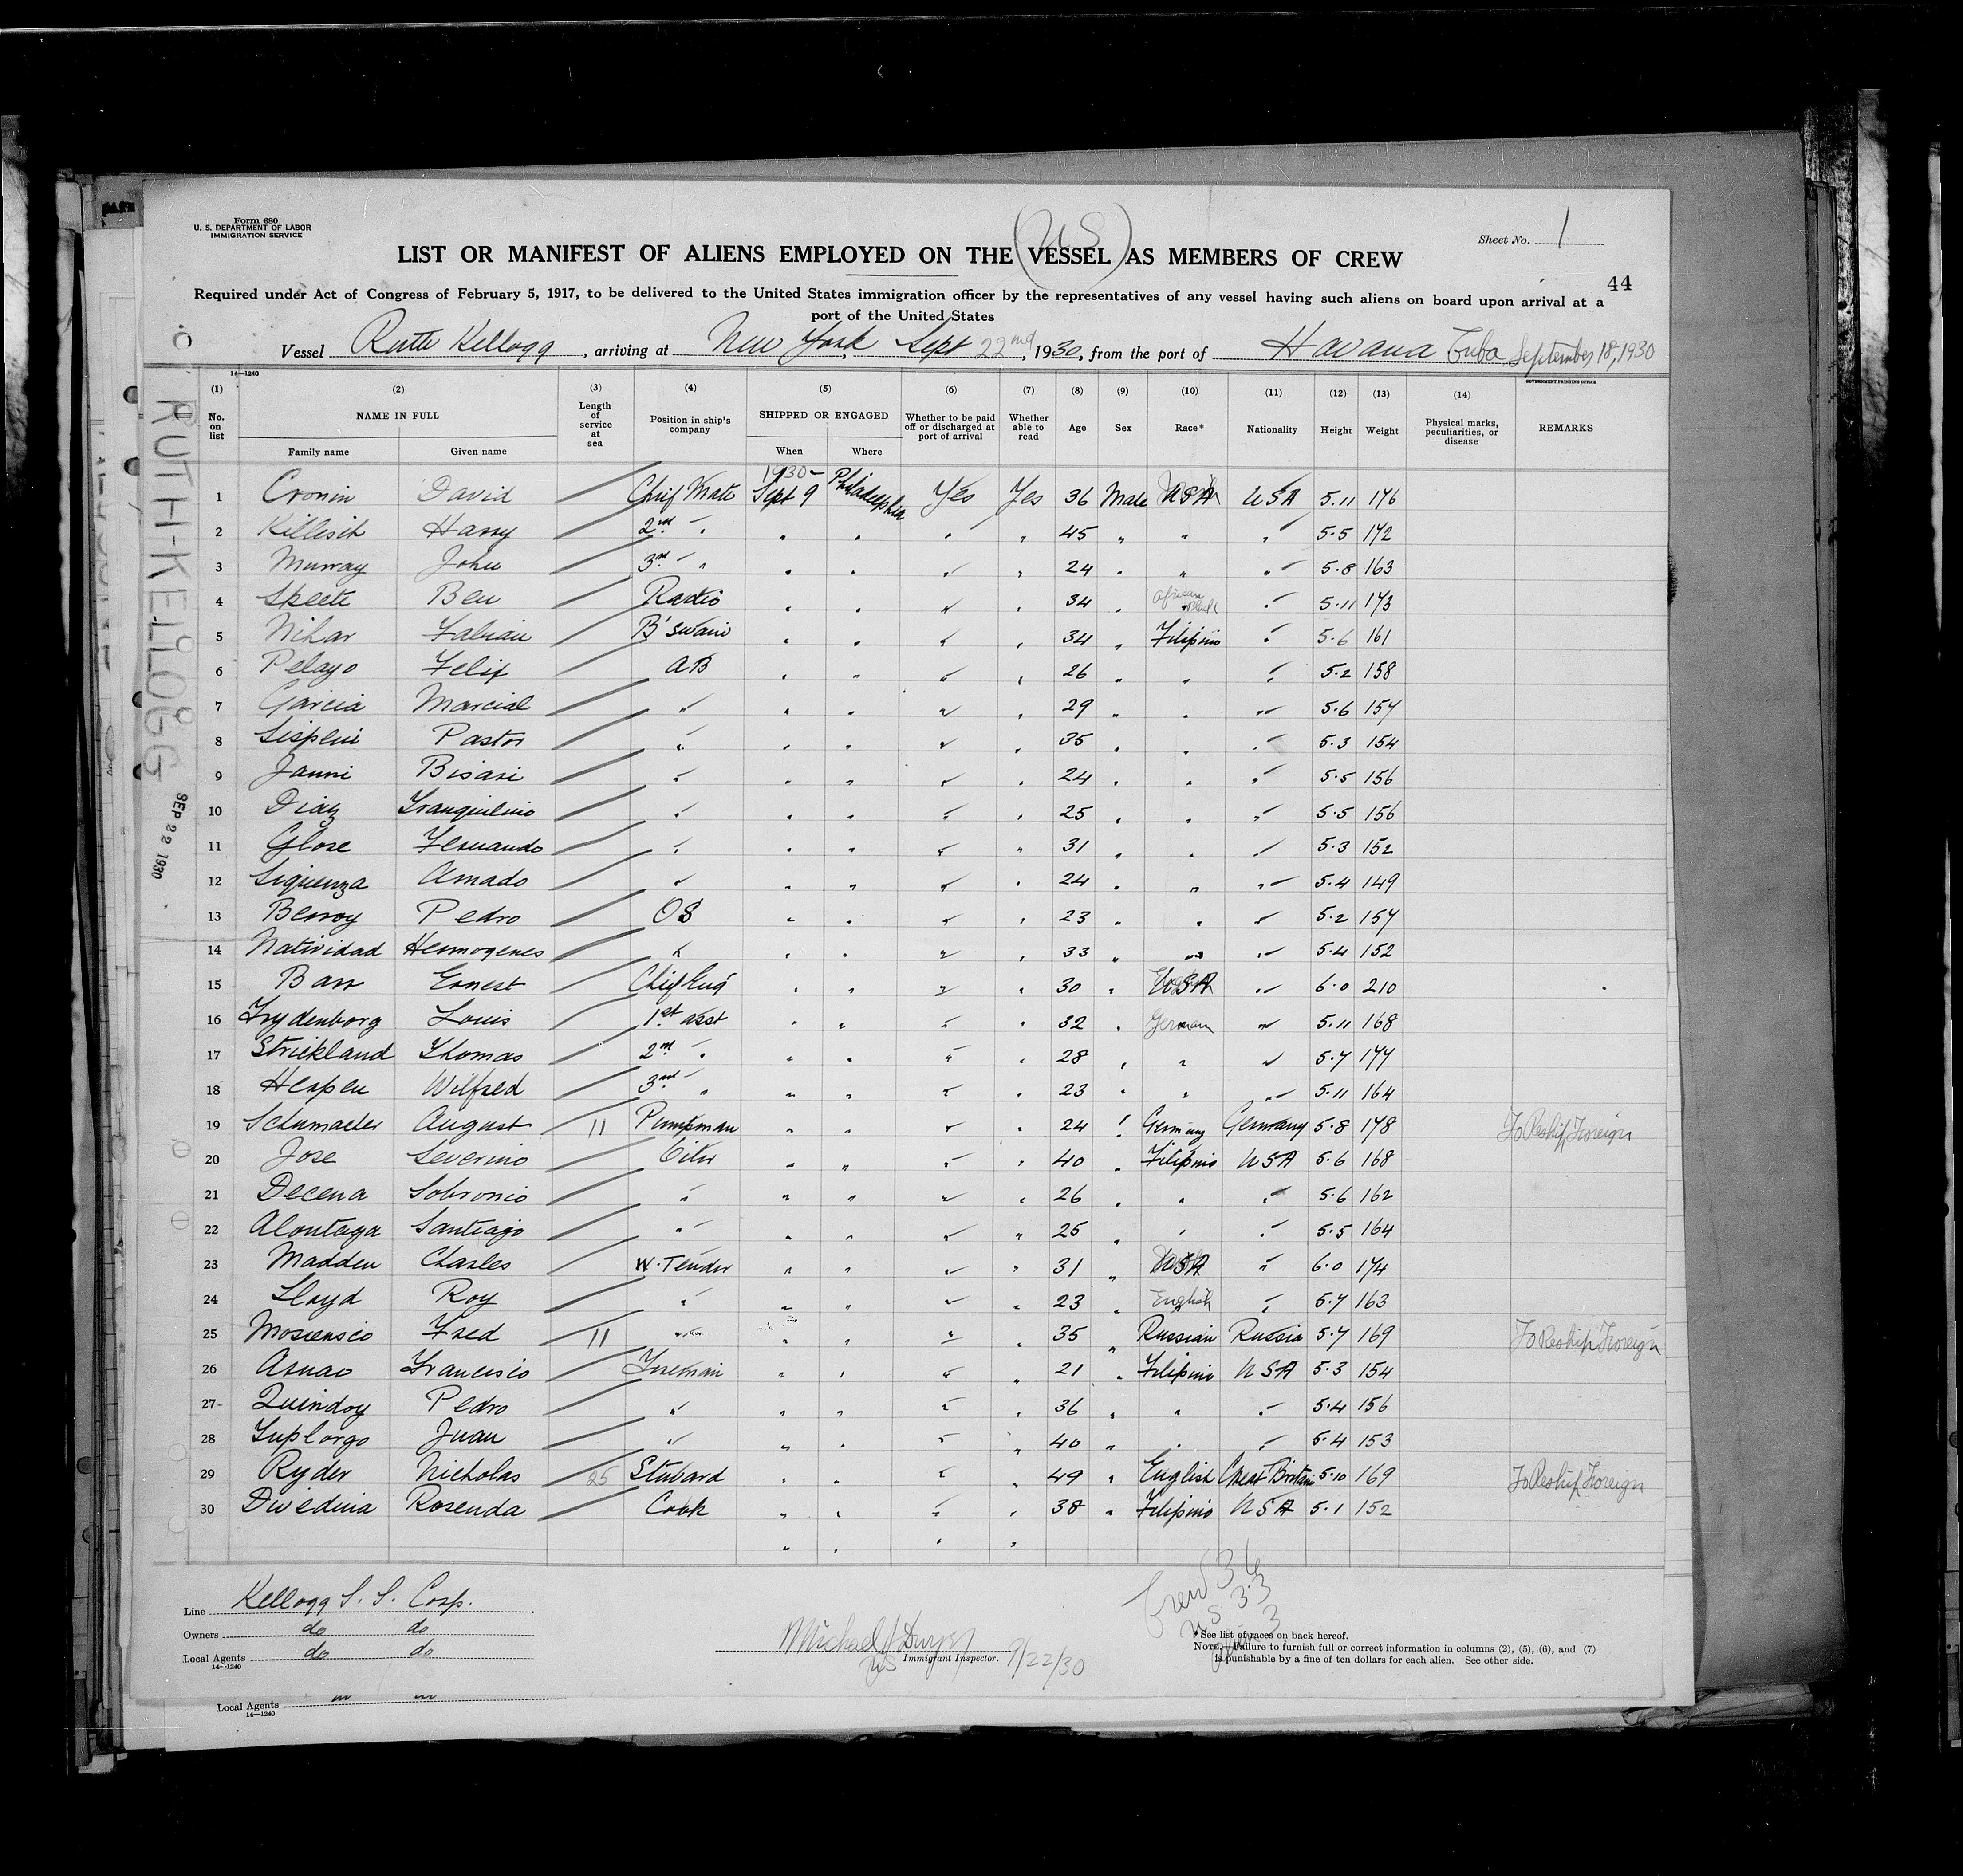 Form 680
U. S. DEPARTMENT OF LABOR
IMMIGRATION SERVICE
(US)
Sheet No. 1
LIST OR MANIFEST OF ALIENS EMPLOYED ON THE VESSEL AS MEMBERS OF CREW
44
Required under Act of Congress of February 5, 1917, to be delivered to the United States immigration officer by the representatives of any vessel having such aliens on board upon arrival at a
port of the United States
Vessel Ruth Kellogg, arriving at New York, Sept 22nd, 1930, from the port of Havana Cuba September 18, 1930
14—1240
GOVERNMENT PRINTING OFFICE
(1) (2) (3) (4) (5) (6) (7) (8) (9) (10) (11) (12) (13) (14)
No. on list NAME IN FULL Length of service at sea Position in ship's company SHIPPED OR ENGAGED Whether to be paid off or discharged at port of arrival Whether able to read Age Sex Race* Nationality Height Weight Physical marks, peculiarities, or disease REMARKS
Family name Given name When Where
1 Cronin David Chief Mate 1930- Sept 9 Philadelphia Yes Yes 36 Male USA USA 5.11 176
2 Killisch Harry 2nd " " " " " 45 " " " 5.5 172
3 Murray John 3rd " " " " " 24 " " " 5.8 163
4 Skeete Ben Radio " " " " 34 " African Black " 5.11 173
5 Nihar Fabian B'swain " " " " 34 " Filipino " 5.6 161
6 Pelayo Felix AB " " " " 26 " " " 5.2 158
7 Garcia Marcial " " " " " 29 " " " 5.6 157
8 Pastor " " " " " 35 " " " 5.3 154
9 Janni Bisari " " " " " 24 " " " 5.5 156
10 Diaz Tranquilino " " " " " 25 " " " 5.5 156
11 Glose Fernando " " " " " 31 " " " 5.3 152
12 Siguenza Amado " " " " " 24 " " " 5.4 149
13 Benroy Pedro OS " " " " 23 " " " 5.2 157
14 Natividad Hermogenes " " " " " 33 " " " 5.4 152
15 Barr Ernest Chief Eng " " " " 30 " USA " 6.0 210
16 Frydenborg Louis 1st asst " " " " 32 " German " 5.11 168
17 Strickland Thomas 2nd " " " " " 28 " " " 5.7 177
18 Hespen Wilfred 3rd " " " " " 23 " " " 5.11 164
19 Schumacher August 11 Pumpman " " " " 24 " Germany Germany 5.8 178 To Reship Foreign
20 Jose Severino Oiler " " " " 40 " Filipino USA 5.6 168
21 Decena Sobronio " " " " " 26 " " " 5.6 162
22 Alontaga Santiago " " " " " 25 " " " 5.5 164
23 Madden Charles W. Tender " " " " 31 " USA " 6.0 174
24 Lloyd Roy " " " " " 23 " English " 5.7 163
25 Fred 11 " " " " " 35 " Russian Russia 5.7 169 To Reship Foreign
26 Arnao Francisco Fireman " " " " 21 " Filipino USA 5.3 154
27 Quindoy Pedro " " " " " 36 " " " 5.4 156
28 Suplorgo Juan " " " " " 40 " " " 5.4 153
29 Ryder Nicholas 25 Stubard " " " " 49 " English Great Britain 5.10 169 To Reship Foreign
30 Divedina Rosenda Cook " " " " 38 " Filipino USA 5.1 152
" " " "
RUTH-KELLOGG
SEP 22 1930
Line Kellogg S. S. Corp.
Owners do do
Local Agents do do
14—1240
Michael J Dwyer
US Immigrant Inspector. 9/22/30
Crew 36
US 33
3
*See list of races on back hereof.
NOTE.—Failure to furnish full or correct information in columns (2), (5), (6), and (7)
is punishable by a fine of ten dollars for each alien. See other side.
Local Agents
14—1240